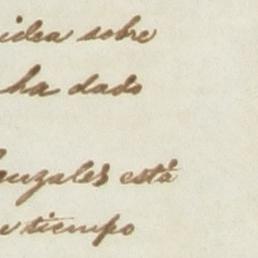 idea sobre
ha dado
Gonzales está
tiempo